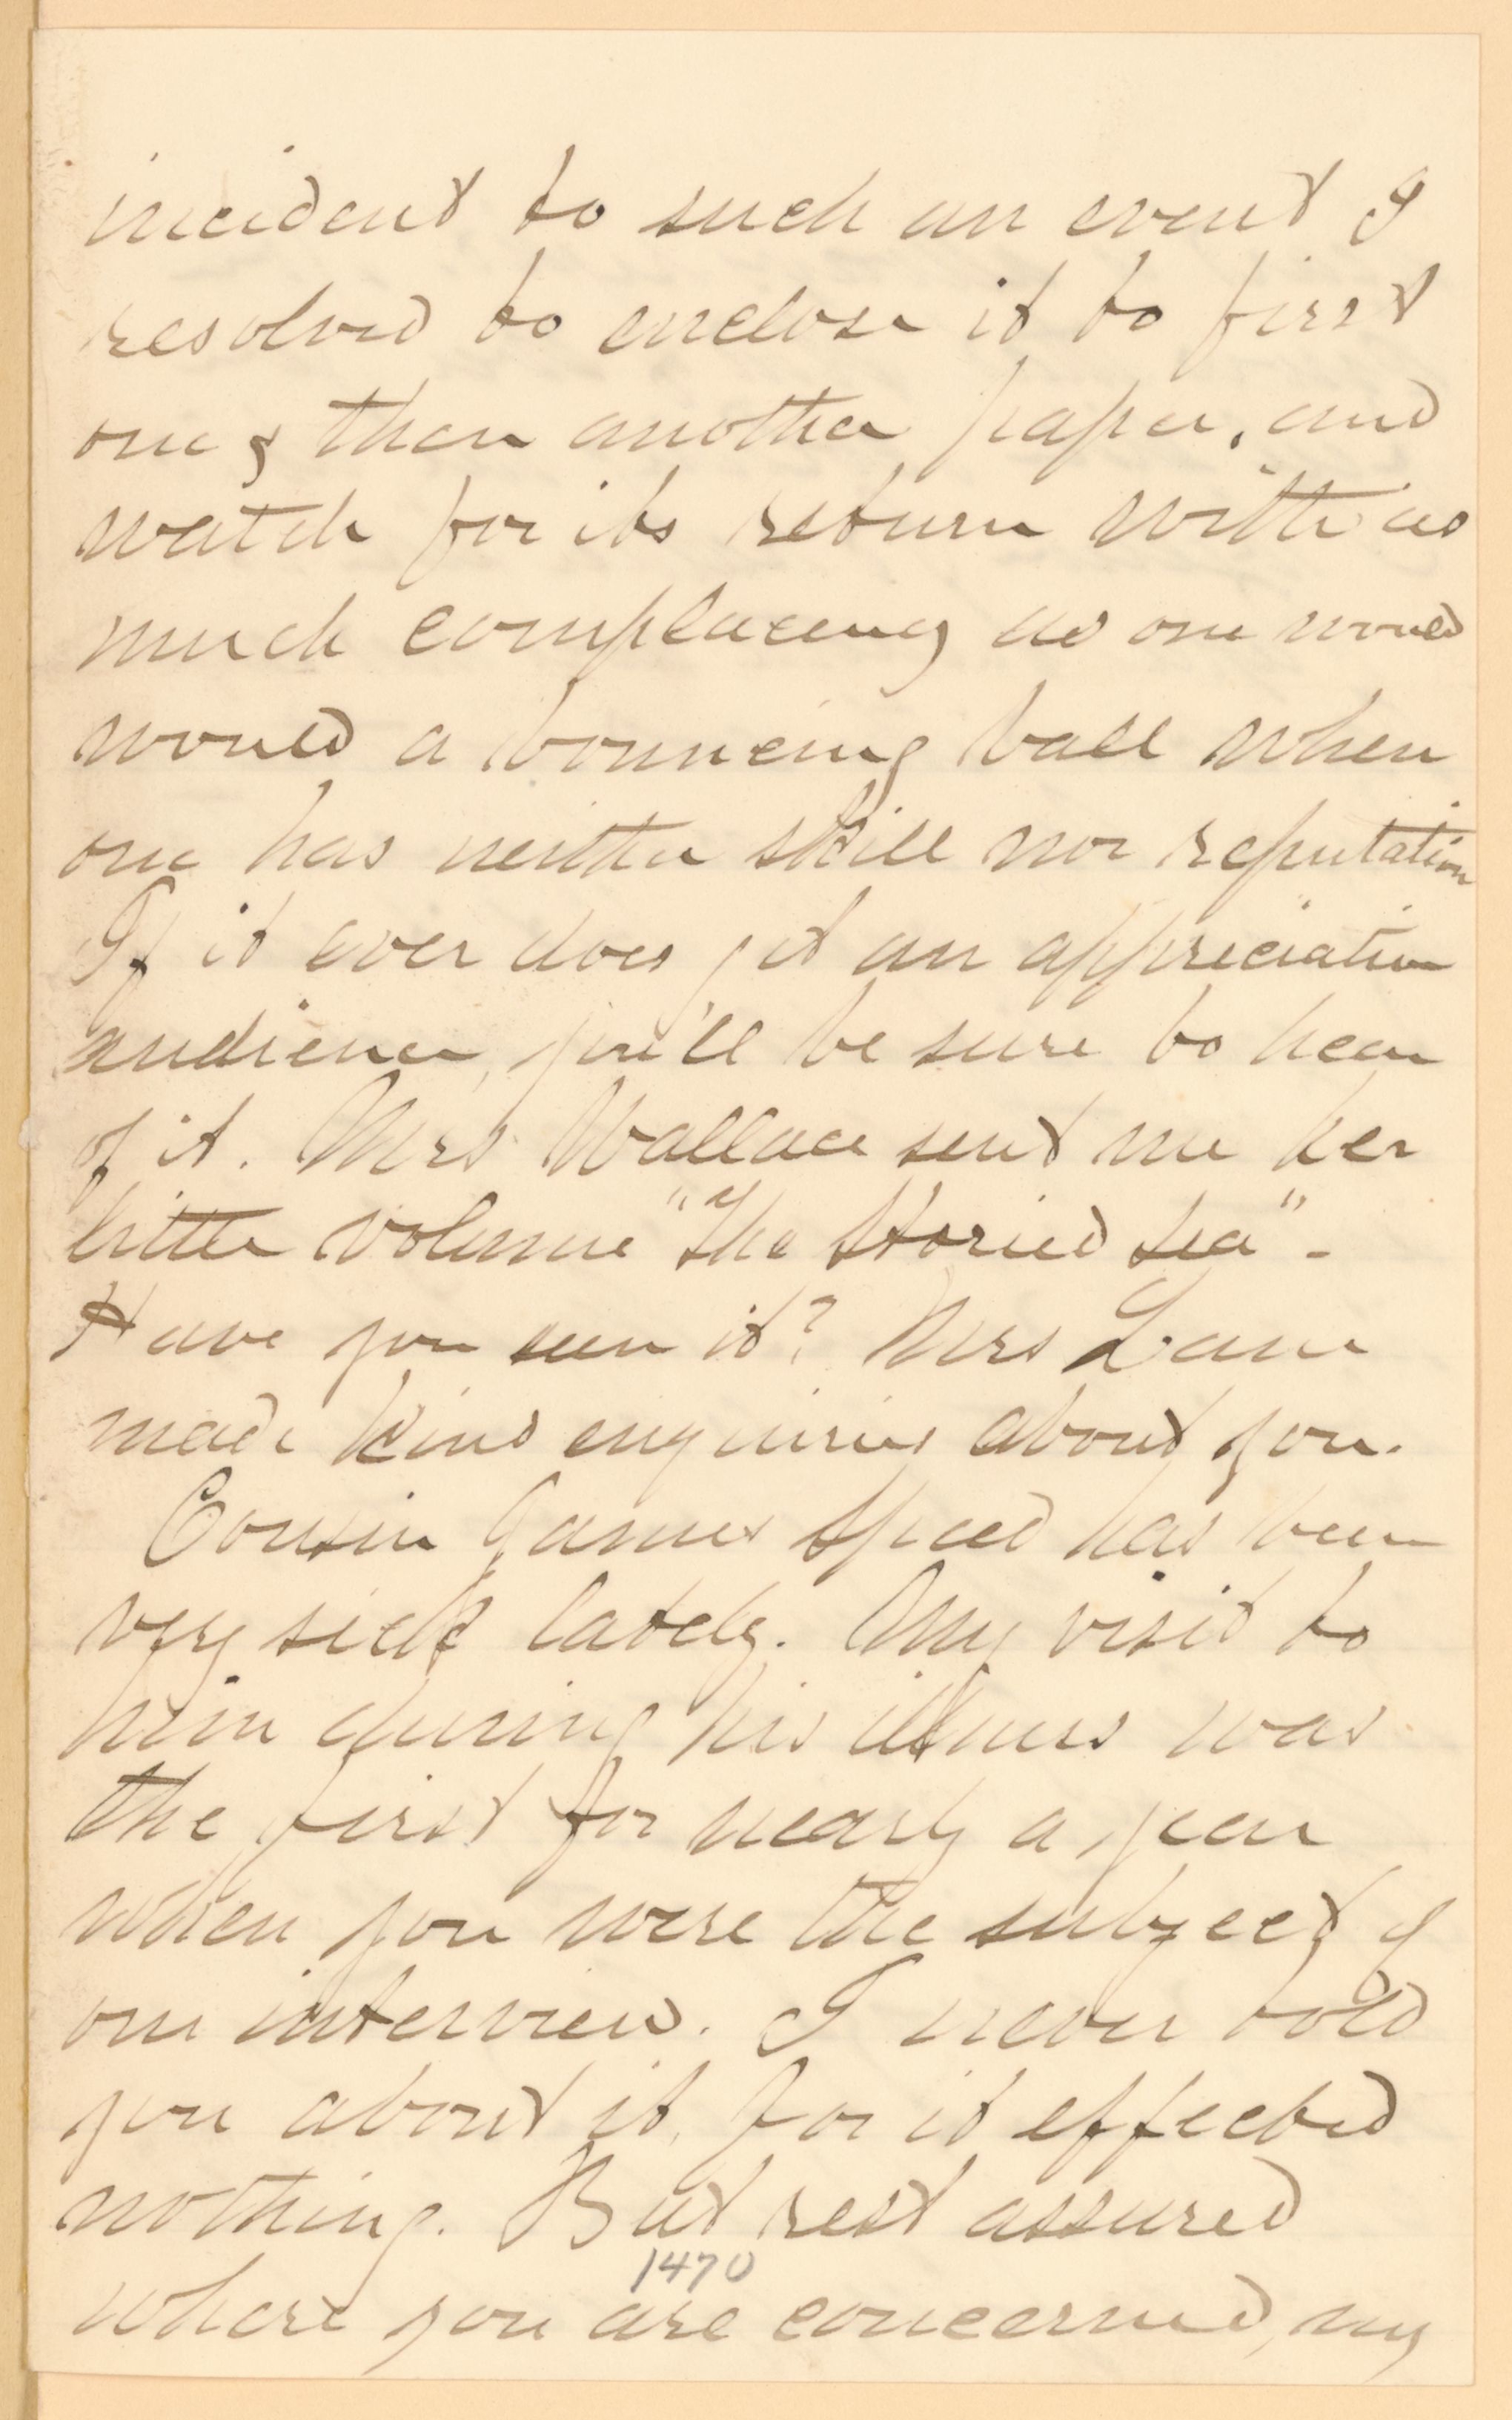 incident to such an event I
resolved to enclose it to first
one & then another paper, and
watch for its return with as
much complacency as one would
would a bouncing ball when
one has neither skill nor reputation
If it ever does get an appreciation
audience, you'll be sure to hear
of it. Mrs Wallace sent me her
little volume "The Storied Sea" -
Have you seen it? Mrs Lane
made kind enquiries about you.
Cousin James Speed has been
very sick lately. My visit to
him during his illness was
the first for nearly a year
when you were the subject of
our interview. I never told
you about it, for it effected
nothing. But rest assured
1470
where you are concerned, my